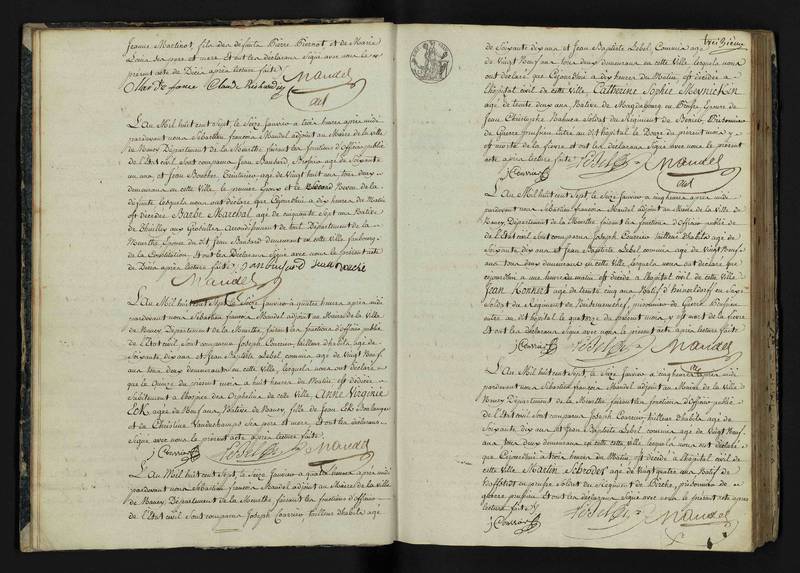 Jeanne Martinot, fils des défunts Pierre Piernot, et de Marie
present acte de Décès après lecture faite
Claude Richard
Mandel
act
L'An Mil huit cent Sept, le Seize Janvier à trois heures après midi
pardevant nous Sébastien françois Mandel adjoint au Maire de la ville
de Nancy Département de la Meurthe faisant les fonctions d'Officier public
de l'Etat civil Sont comparus Jean agé de Soixante
un ans et Jean Bouchée agé de Vingt huit ans tous deux
demeurans en cette Ville, le premier Epoux et le Second Neveu de la
défunte lesquels nous ont déclaré que Cejourd'hui à dix heures du Matin
est décédée Barbe Marechal agée de Cinquante Sept ans Native
de Arrondissement de Toul Département de la
Meurthe femme du dit Jean demeurant en cette Ville faubourg
de la Constitution. Et ont les Déclarans Signé avec nous le présent acte
de Décès après lecture faite.
Mandel
L'An Mil huit cent Sept, le Seize Janvier à quatre heures après midi
pardevant nous Sébastien françois Mandel adjoint au Maire de la Ville
de Nancy, Département de la Meurthe, faisant les fonctions d'Officier public
de l'Etat civil Sont comparus Joseph Courrier tailleur d'habits agé de
Soixante dix ans et Jean Baptiste Lebel commis agé de Vingt Neuf
ans tous deux demeurans en cette Ville, lesquels nous ont déclaré
que le Quinze du présent mois à huit heures du Matin est décédée
Subitement à l'hospice des Orphelins de cette Ville, Anne Virginie
Eck agée de Neuf ans, Native de Nancy, fille de Jean Eck Boulanger
et de Christine Vauderchamps Ses père et mère. Et ont les déclarans
Signé avec nous le présent acte après lecture faite.
J Courrier Lebel Mandel
L'An Mil huit cent Sept, le Seize Janvier à quatre heures après midi
pardevant nous Sébastien françois Mandel adjoint au Maire de la Ville
de Nancy, Département de la Meurthe faisant les fonctions d'Officier public
de l'Etat civil Sont comparus Joseph Courrier, tailleur d'habits agé
treizieme
de Soixante dix ans et Jean Baptiste Lebel, Commis agé
de Vingt Neuf ans, tous deux demeurans en cette Ville lesquels nous
ont déclaré que Cejourd'hui à dix heures du Matin, est décédée à
l'hôpital civil de cette Ville Catherine Sophie Meynickin
agée de trente deux ans, Native de Magdebourg en Prusse femme de
Jean Christophe Soldat du Régiment de Prisonnier
de Guerre prussien entrée au dit hôpital le Douze du présent mois y
est morte de la fievre et ont les Déclarans Signé avec nous le présent
acte après lecture faite.
J Courrier Lebel Mandel
act
L'An Mil huit cent Sept, le Seize Janvier à cinq heures après midi
pardevant nous Sébastien françois Mandel adjoint au Maire de la Ville de
Nancy, Département de la Meurthe faisant les fonctions d'Officier public de
l'Etat civil Sont comparus Joseph Courrier tailleur d'habits agé de
Soixante dix ans et Jean Baptiste Lebel commis agé de Vingt Neuf
ans tous deux demeurans en cette Ville lesquels nous ont déclaré que
cejourd'hui à une heure du matin est décédé à l'hôpital civil de cette Ville
Jean Konnert agé de trente cinq ans Natif d' en Saxe
Soldat du Régiment de prisonnier de Guerre Prussien
entré au dit hôpital le quatorze du présent mois y est mort de la fievre
Et ont les déclarans Signé avec nous le présent acte après lecture faite
J Courrier Lebel Mandel
L'An Mil huit cent Sept, le Seize Janvier à cinq heures après midi
pardevant nous Sébastien françois Mandel adjoint au Maire de la Ville
de Nancy Département de la Meurthe, faisant les fonctions d'Officier public
de l'Etat civil Sont comparus Joseph Courrier tailleur d'habits agé de
Soixante dix ans et Jean Baptiste Lebel commis agé de Vingt Neuf
ans, tous deux demeurans en cette Ville, lesquels nous ont déclaré
que Cejourd'hui à trois heures du Matin est décédé à l'hôpital civil de
cette Ville Martin Schroder agé de Vingt quatre ans Natif de
en prusse Soldat du Régiment de prisonnier de
guerre prussien Et ont les déclarans Signé avec nous le présent acte après
lecture faite
J Courrier Lebel Mandel